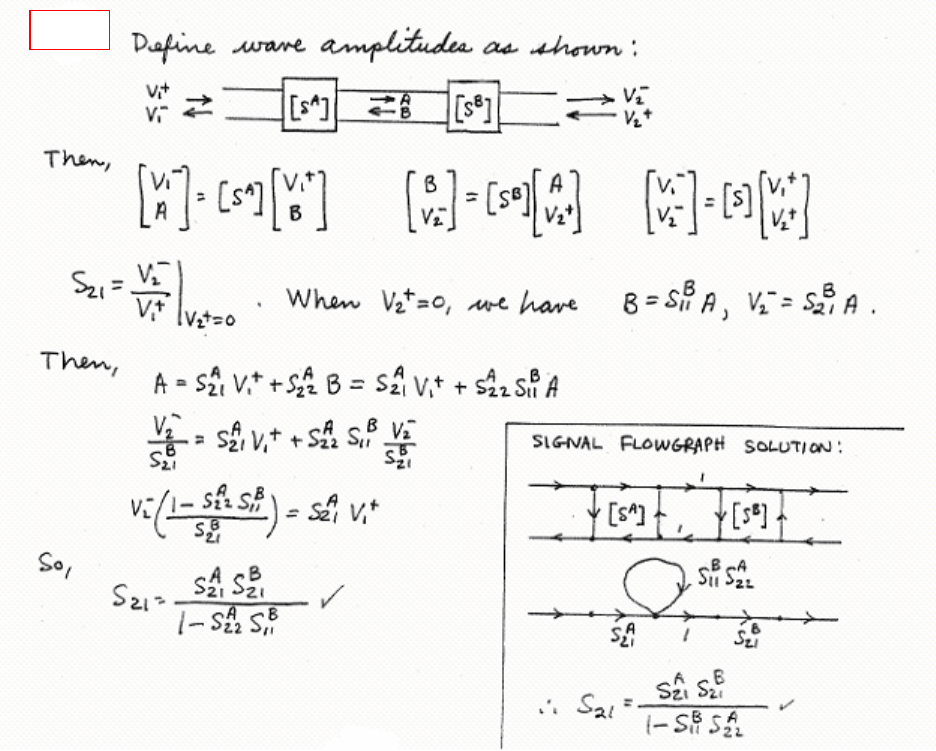 Define wave amplitudes as shown:
V₁⁺ V₁⁻ [Sᴬ] A B [Sᴮ] V₂⁻ V₂⁺
Then,
[V₁⁻ A] = [Sᴬ] [V₁⁺ B] [B V₂⁻] = [Sᴮ] [A V₂⁺] [V₁⁻ V₂⁻] = [S] [V₁⁺ V₂⁺]
S₂₁ = V₂⁻/V₁⁺ |V₂⁺=0 . When V₂⁺=0, we have B = S₁₁ᴮ A, V₂⁻ = S₂₁ᴮ A.
Then,
A = S₂₁ᴬ V₁⁺ + S₂₂ᴬ B = S₂₁ᴬ V₁⁺ + S₂₂ᴬ S₁₁ᴮ A
V₂⁻/S₂₁ᴮ = S₂₁ᴬ V₁⁺ + S₂₂ᴬ S₁₁ᴮ V₂⁻/S₂₁ᴮ
V₂⁻ ((1 - S₂₂ᴬ S₁₁ᴮ)/S₂₁ᴮ) = S₂₁ᴬ V₁⁺
So,
S₂₁ = S₂₁ᴬ S₂₁ᴮ/(1 - S₂₂ᴬ S₁₁ᴮ) ✓
SIGNAL FLOWGRAPH SOLUTION:
1
[Sᴬ] [Sᴮ]
1
S₁₁ᴮ S₂₂ᴬ
S₂₁ᴬ 1 S₂₁ᴮ
∴ S₂₁ = S₂₁ᴬ S₂₁ᴮ/(1 - S₁₁ᴮ S₂₂ᴬ) ✓